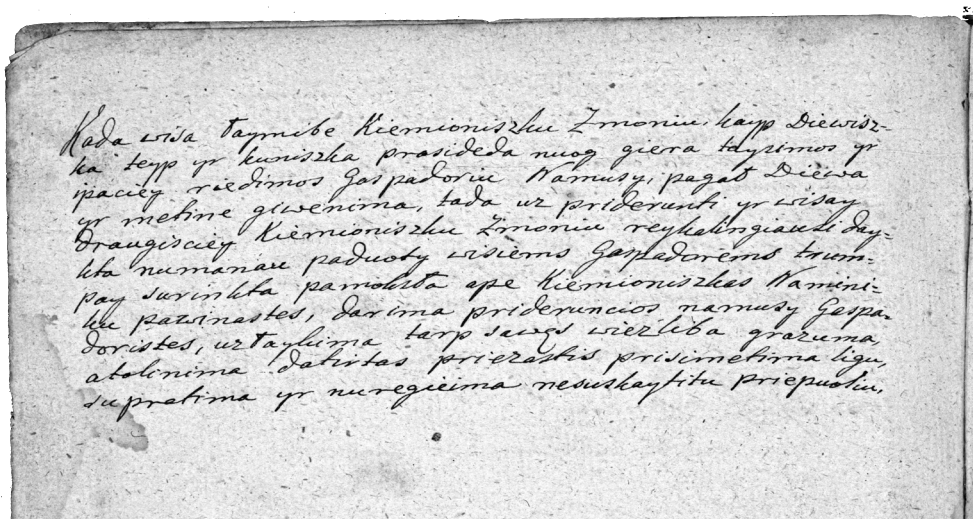 Kada wisa łaymibe Kiemioniszku Zmoniu, kayp Diewisz-
ka teyp yr kuniszka prasideda nuog giera tayzimos yr
ipaciey riedimos Gaspadoriu Namusy, pagał Diewa
yr metine giwenima, tada uz priderunti yr wisay
draugisciey Kiemioniszku Zmoniu reykalingiause day-
kta numaniau paduoty wisiems Gaspadorems trum-
pay surinkta pamoksła ape Kiemioniszkas Namini-
ku pawinastes, darima prideruncios namusy Gaspa-
doristes, uzłaykima tarp sawęs wiezliba grazuma,
atolinima datirtas priezastis prisimetima ligu,
supratima yr nuregieima nesuskaytitu priepuoliu.